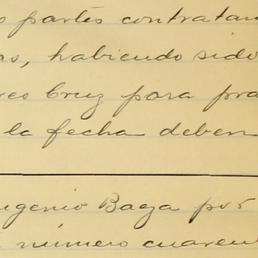 s partes contratan
as, habiendo sido
res Cruz para pra
la fecha deben
ugenio Baga por
número cuaren